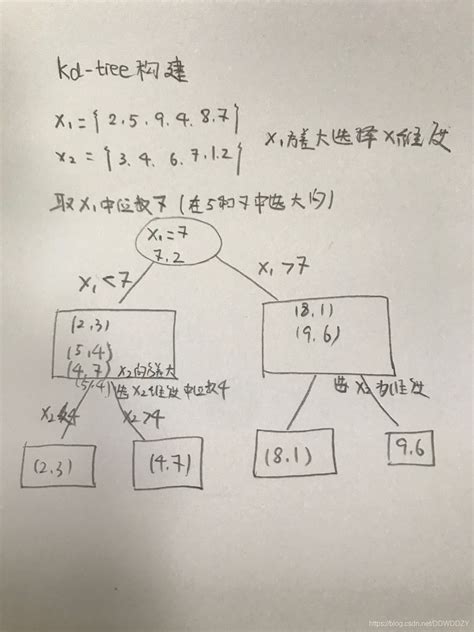 kd-tree 构建
x₁ = { 2, 5, 9, 4, 8, 7 }
x₂ = { 3, 4, 6, 7, 1, 2 }
x₁方差大选择x₁维度
取x₁中位数7 (在5和7中选大的)
x₁=7
7.2
x₁<7
x₁>7
(2,3)
(5,4)
(4,7)
(8,1)
(9,6)
x₂的方差大
(5,4)
选x₂维度中位数4
选x₂为维度
x₂<4
x₂>4
(2,3)
(4,7)
(8,1)
9.6
https://blog.csdn.net/DDWDDZY